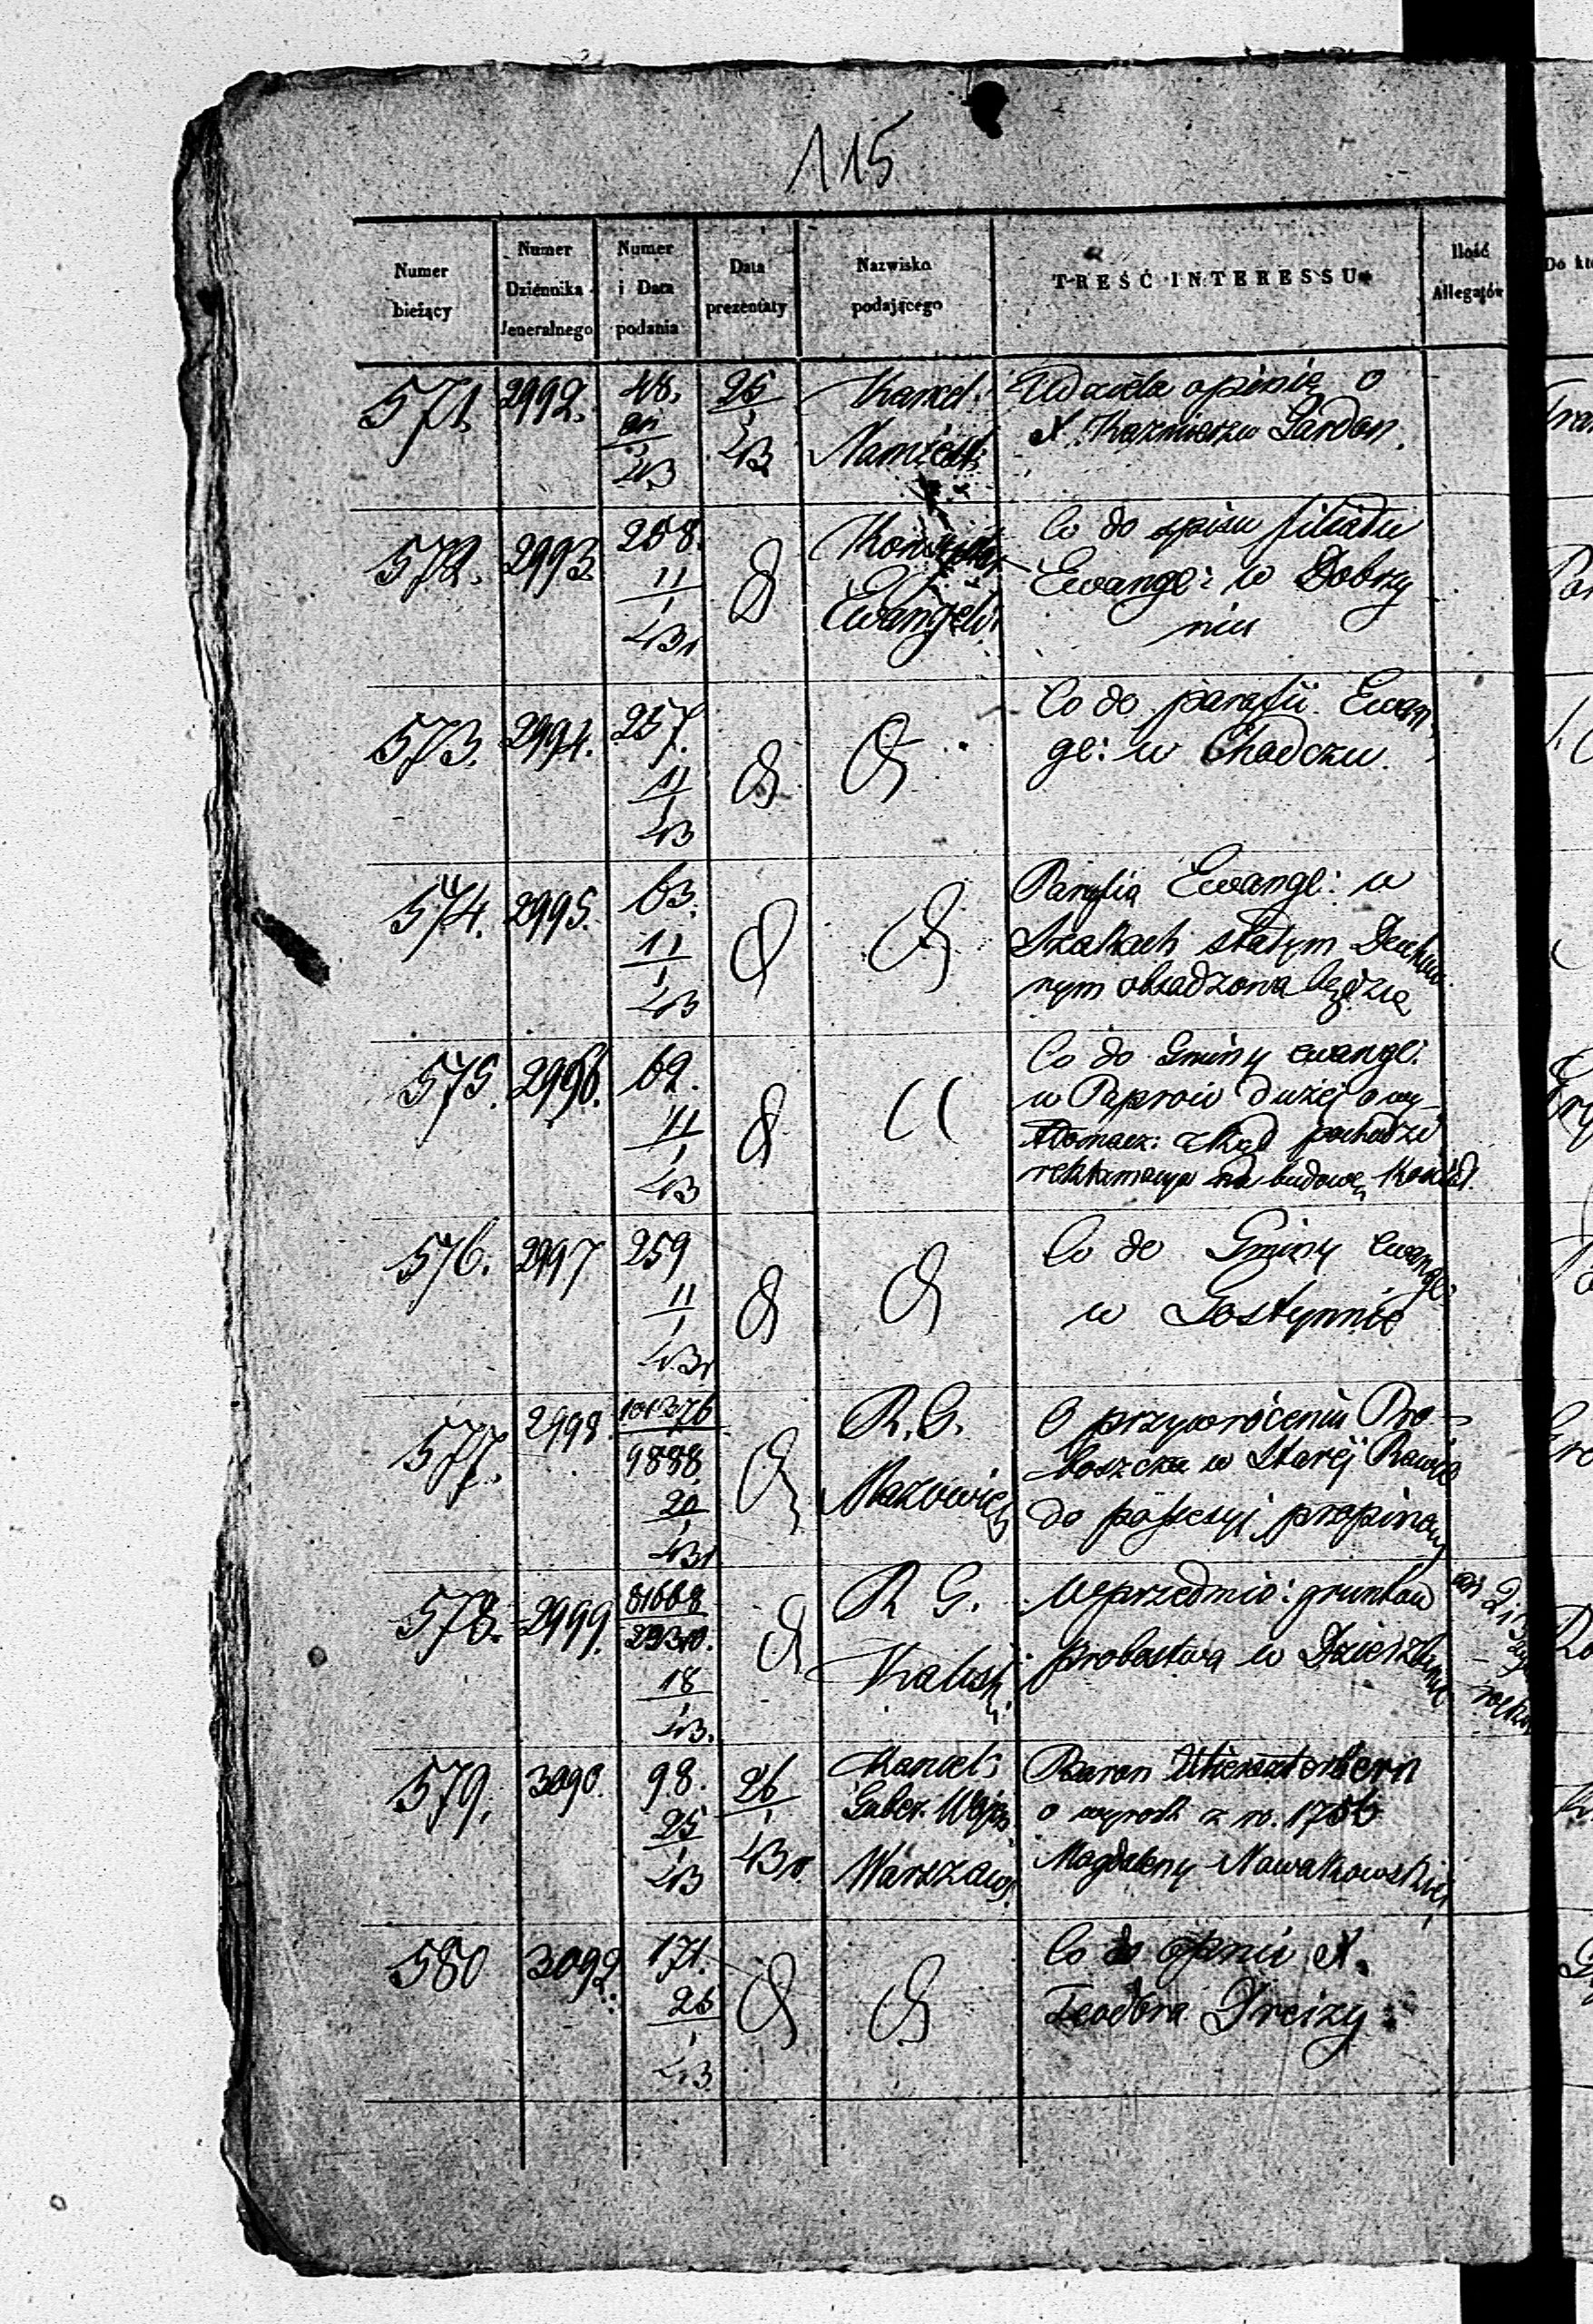 115
Numer bieżący
Numer Dziennika Jeneralnego
Numer i Data podania
Data prezentaty
Nazwisko podającego
TREŚĆ INTERESSU
Ilość Allegatów
571. 2992. 48. 25/1 43 Kancel: Namiest: Udziela opinię o
X. Kazmierzu Gardon.
572. 2993. 258. 11/1 43. Konsystor Ewangeli: Co do spisu filiału
Ewange: w Dobrzy
niu
573. 2994. 257. 11/1 43 Co do parafii Ewan
ge: w Chodczu.
574. 2995. 63. 11/1 43 Parafia Ewange: w
Szakach stałym Duchow
nym obsadzona będzie
575. 2996. 62. 11/1 43 Co do Gminy ewange:
w Paproci dużej o wy
tłomacz: zkąd pochodzi
reklamacya na budowę Kościoł.
576. 2997 259 11/1 43. Co do Gminy ewange:
w Gostynnie
577. 2998. 101376/9888. 20/1 43. R. G. Mazowiec O przywróceniu Pro
boszcza w Starej Rawie
do possesyi propinacy
578. 2999. 81668 18/1 43. R G. Kalisk: W przedmio: gruntów
probostwa w
579. 3090. 98. 25/1 43 26/1 43. Kancel: Guber. Wojen Warszaws. Baron
o wyrok z r. 1756
Magdaleny Nowakowskiej
580 3092. 171. 25/1 43 Co do opinii X.
Teodora